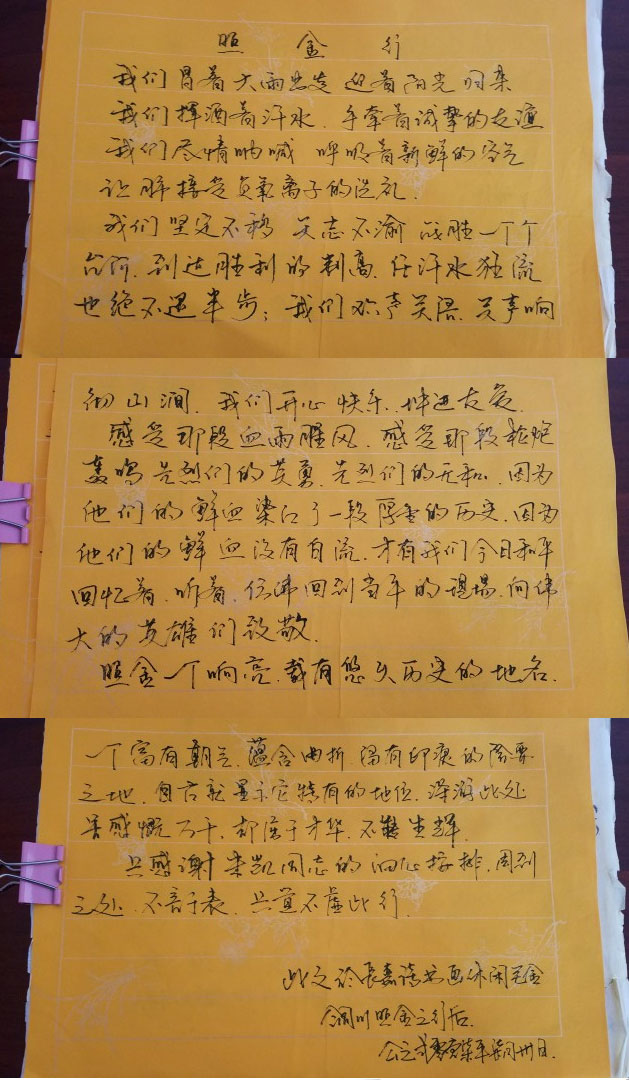 照金行
我们冒着大雨出发 迎着阳光归来
我们挥洒着汗水、手牵着诚挚的友谊
我们尽情呐喊 呼吸着新鲜的空气
让肺接受负氧离子的洗礼.
我们坚定不移 矢志不渝 战胜一个个
台阶、到达胜利的制高、任汗水狂流
也绝不退半步；我们欢声笑语、笑声响
彻山涧、我们开心快乐、增进友爱.
感受那段血雨腥风、感受那段枪炮
轰鸣 先烈们的英勇、先烈们的无私、因为
他们的鲜血染红了一段厚重的历史、因为
他们的鲜血没有白流、才有我们今日和平
回忆着、听着、仿佛回到当年的现场、向伟
大的英雄们致敬.
照金一个响亮、载有悠久历史的地名.
一个富有朝气、蕴含曲折 留有印痕的险要
之地、自古就显示它特有的地位、深游此处
皆感慨万千、却落于才华、不能生辉.
只感谢 凯同志的细心接排、周到
之处、不言于表、只道不虚此行.
此文於长嘉 书画休闲
铜川照金之行后.
公元 日.